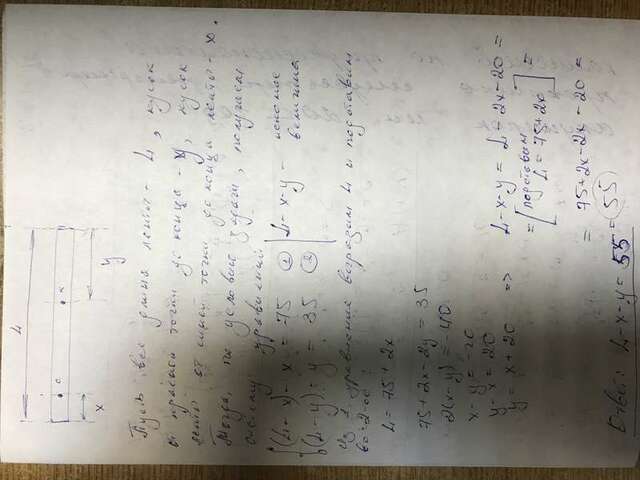 L
с к
x y
Пусть вся длина ленты - L, кусок
от красной точки до конца - y, кусок
ленты от синей точки до конца ленты - x.
Тогда, по условию задачи, получаем
систему уравнений:
(L - x) - x = 75 ① L - x - y - искомая
(L - y) - y = 35 ② величина
Из 1 уравнения выразим L и подставим
во 2-ое:
L = 75 + 2x
75 + 2x - 2y = 35
2(x - y) = -40
x - y = -20
y - x = 20
y = x + 20 => L - x - y = L - 2x - 20 =
= [подставим
L = 75 + 2x] =
= 75 + 2x - 2x - 20 =
= 55
Ответ: L - x - y = 55